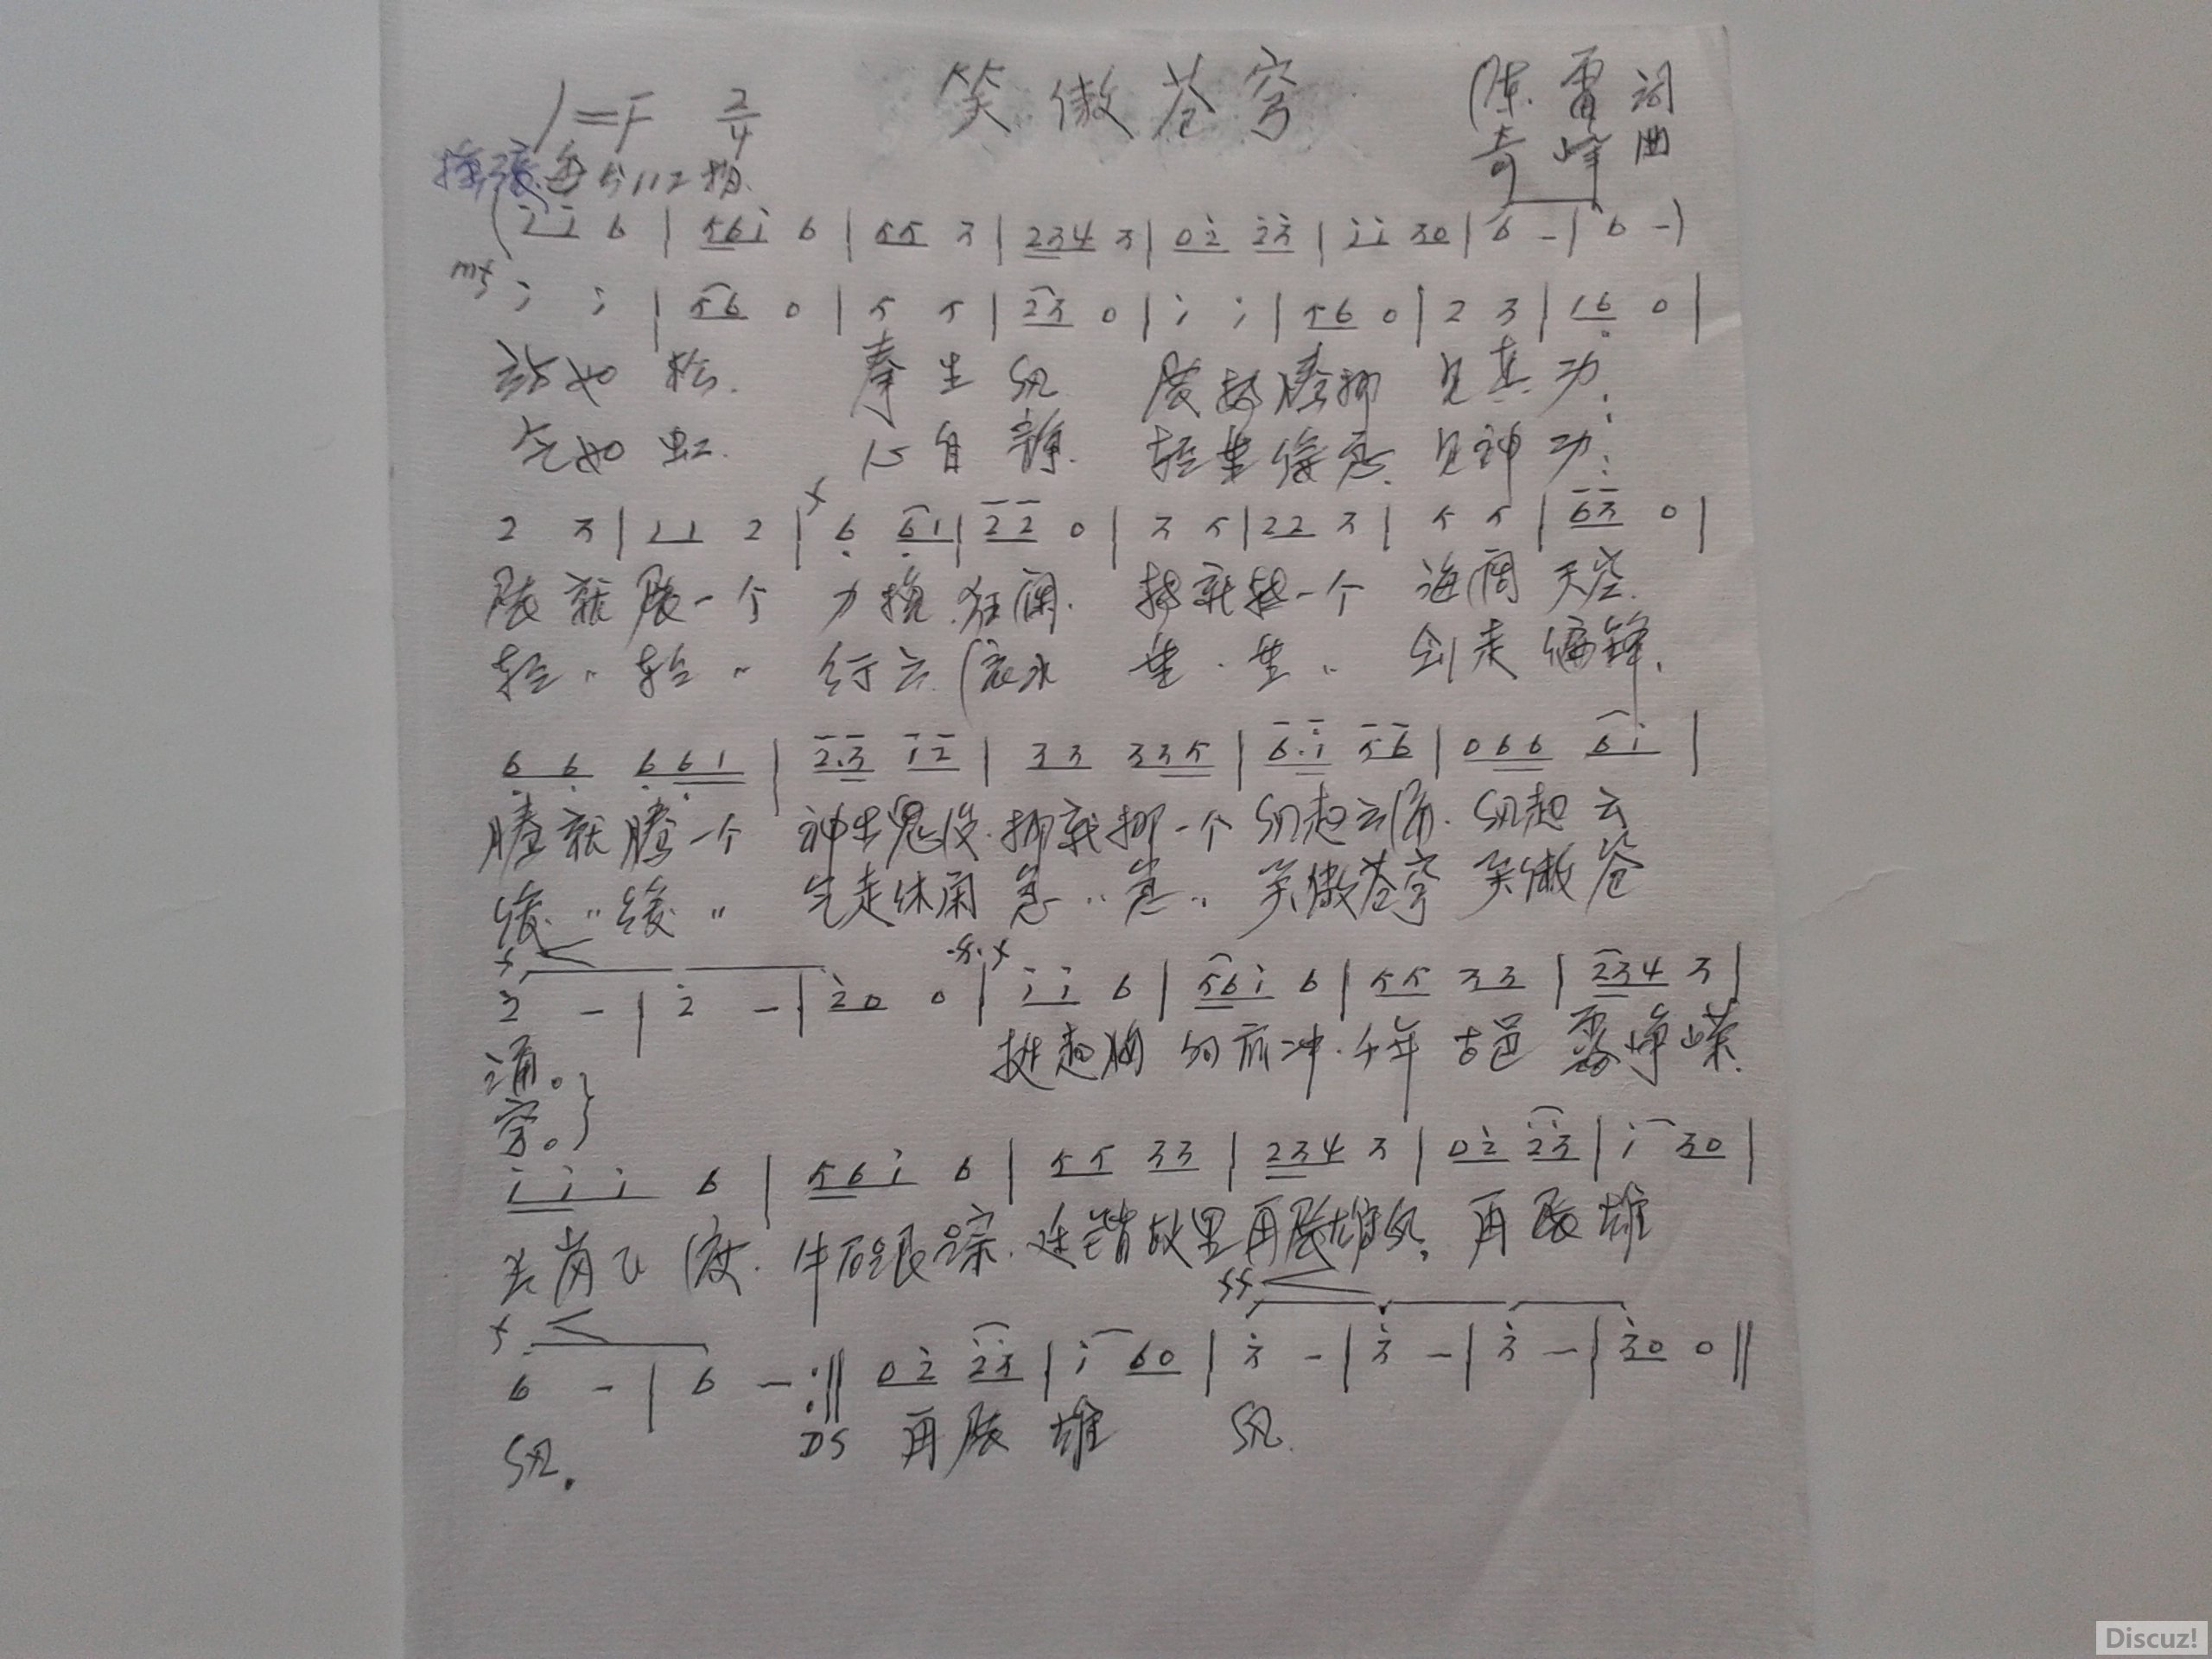 笑傲苍穹
1=F 2/4
陈雷 词
奇峰 曲
每分112拍
(2̇ 1̇ 6 | 5 6 1̇ 6 | 5 5 3 | 2 3 4 3 | 0 2̇ 2̇ 3̇ | 1̇ 1̇ 3 0 | 6 - | 6 -)
mf 1̇ 1̇ | 5 6 0 | 5 5 | 2 3 0 | 1̇ 1̇ | 5 6 0 | 2 3 | 1 6̣ 0 |
站如松. 拳生风 展转腾挪 见真功:
气如虹. 心自静. 轻重缓急. 见神功:
2 3 | 1 1 2 | f 6̣ 6̣ 1 | 2 2 0 | 3 5 | 2 2 3 | 5 5 | 6 3 0 |
展就展一个 力挽狂澜. 转就转一个 海阔天空.
轻 〃 轻 〃 行云流水 重 〃 重 〃 剑走偏锋.
6̣ 6̣ 6̣ 6̣ 1 | 2. 3 1 2 | 3 3 3 3 5 | 6. 1̇ 5 6 | 0 6 6 6 1̇ |
腾就腾一个 神出鬼没. 挪就挪一个 风起云涌. 风起云
缓 〃 缓 〃 气走休闲 急 〃 急 〃 笑傲苍穹 笑傲苍
f 2̇ - | 2̇ - | 2̇ 0 0 | 1̇ 1̇ 6 | 5 6 1̇ 6 | 5 5 3 3 | 2 3 4 3 |
涌。 挺起胸 向前冲. 千年古邑 雾峥嵘.
穹。}
1̇ 1̇ 1̇ 6 | 5 6 1̇ 6 | 5 5 3 3 | 2 3 4 3 | 0 2̇ 2̇ 3̇ | 1̇ 3 0 |
飞渡. 牛石跟踪. 故里再展雄风. 再展雄
f 6 - | 6 - :‖ 0 2̇ 2̇ 3̇ | 1̇ 6 0 | ff 3̇ - | 3̇ - | 3̇ - | 3̇ 0 0 ‖
风. DS 再展雄 风.
Discuz!